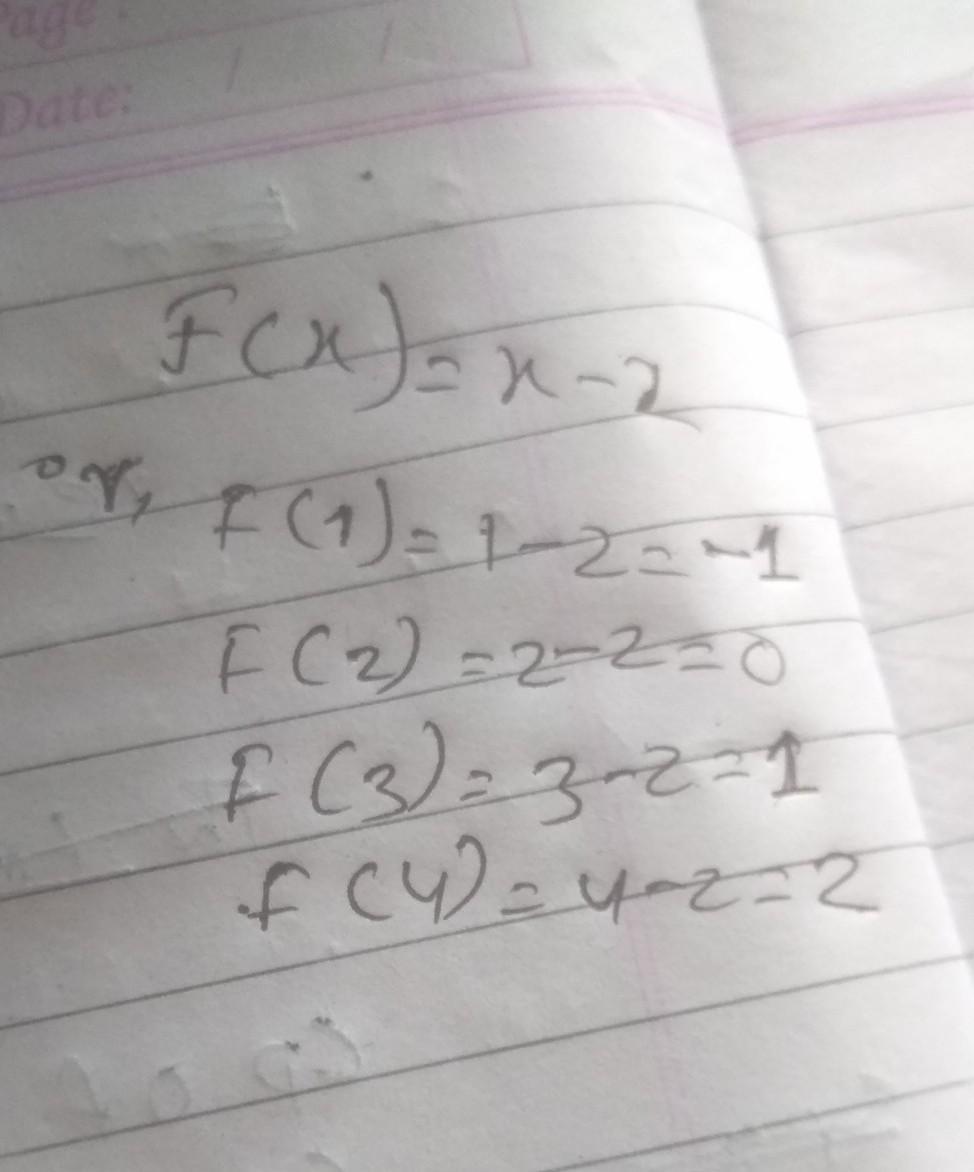 Page
Date: / /
F(x) = x - 2
or, F(1) = 1 - 2 = -1
F(2) = 2 - 2 = 0
F(3) = 3 - 2 = 1
F(4) = 4 - 2 = 2